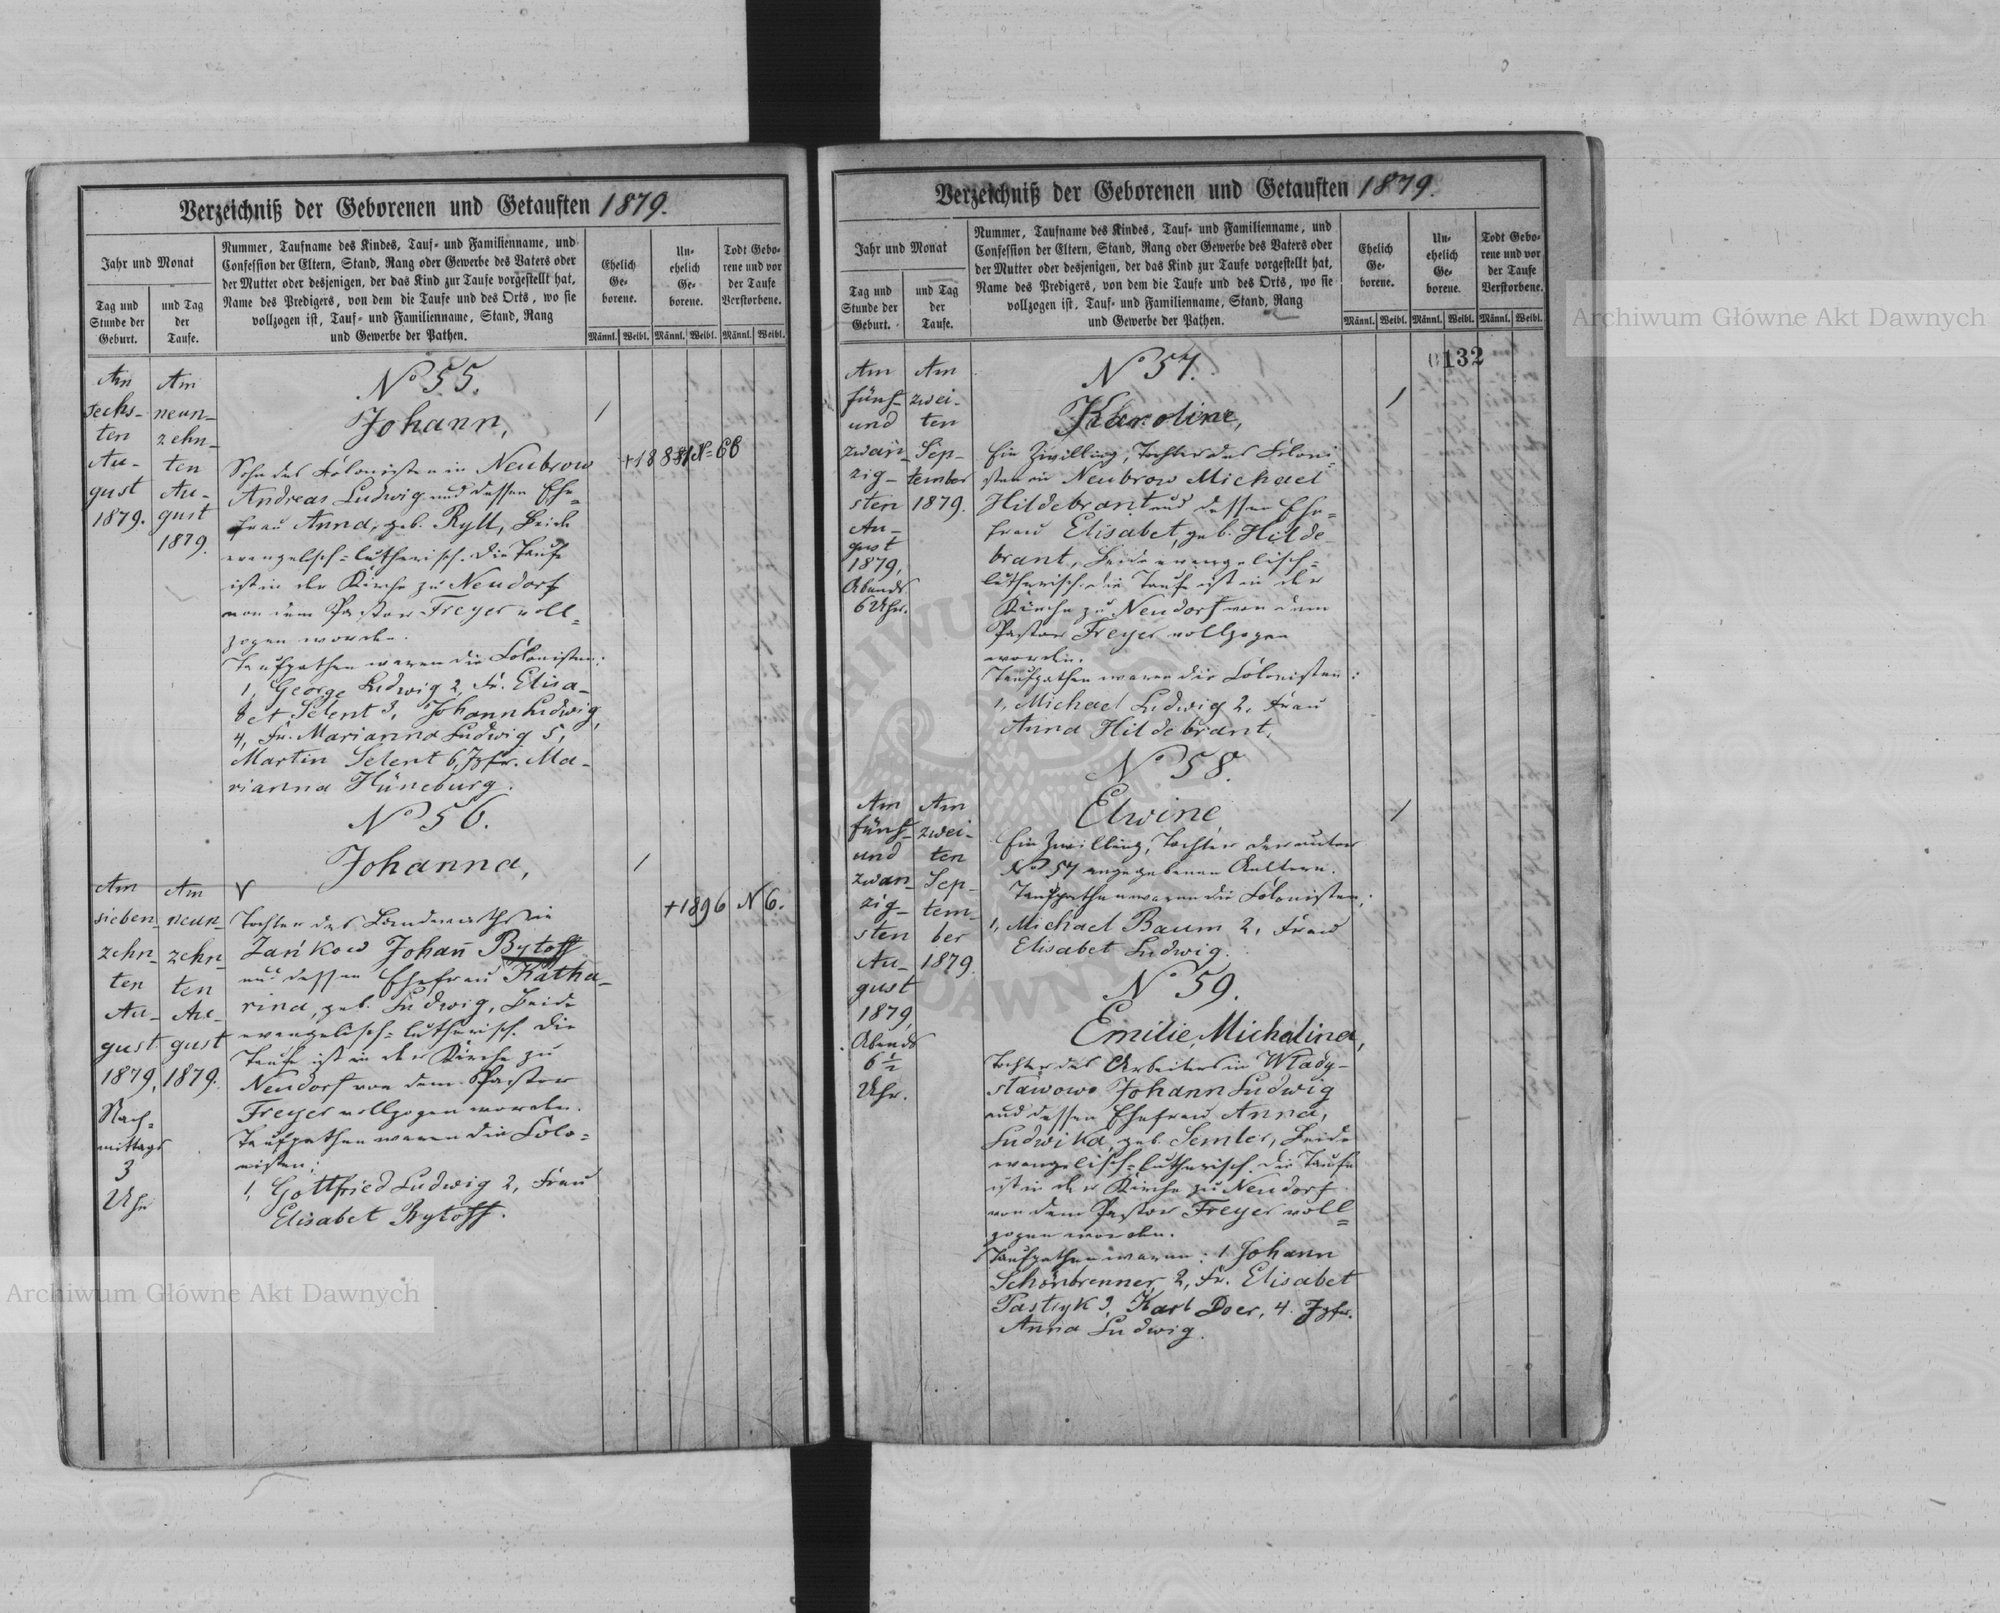 Verzeichniß der Geborenen und Getauften 1879.
Jahr und Monat
Tag und
Stunde der
Geburt.
und Tag
der
Taufe.
Nummer, Taufname des Kindes, Tauf- und Familienname, und
Confession der Eltern, Stand, Rang oder Gewerbe des Vaters oder
der Mutter oder desjenigen, der das Kind zur Taufe vorgestellt hat,
Name des Predigers, von dem die Taufe und des Orts, wo sie
vollzogen ist, Tauf- und Familienname, Stand, Rang
und Gewerbe der Pathen.
Ehelich
Ge-
borene.
Un-
ehelich
Ge-
borene.
Todt Gebo-
rene und vor
der Taufe
Verstorbene.
Männl. Weibl. Männl. Weibl. Männl. Weibl.
Am
sechs-
ten
Au-
gust
1879.
Am
neun-
zehn-
ten
Au-
gust
1879.
No 55.
Johann,
Sohn des Kolonisten in Neubrow
Andreas Ludwig und dessen Ehe-
frau Anna, geb. Ryll, Beide
evangelisch-lutherisch. Die Taufe
ist in der Kirche zu Neudorf
von dem Pastor Freyer voll-
zogen worden.
Taufpathen waren die Colonisten:
1, George Ludwig 2, Fr. Elisa-
bet Selent 3, Johann Ludwig,
4, Fr. Marianna Ludwig 5,
Martin Selent 6, Jgfr. Ma-
rianna Hüneburg.
No 56.
Johanna,
Am
sieben-
zehn-
ten
Au-
gust
1879,
Nach-
mittags
3
Uhr
Am
neun-
zehn-
ten
Au-
gust
1879.
Tochter des Landwirths in
Zańkow Johan̄ Bytoff
und dessen Ehefrau Katha-
rina, geb. Ludwig, Beide
evangelisch-lutherisch. Die
Taufe ist in der Kirche zu
Neudorf von dem Pastor
Freyer vollzogen worden.
Taufpathen waren die Colo-
nisten:
1, Gottfried Ludwig 2, Frau
Elisabet Bytoff.
+1896 N 6.
Verzeichniß der Geborenen und Getauften 1879.
Jahr und Monat
Tag und
Stunde der
Geburt.
und Tag
der
Taufe.
Nummer, Taufname des Kindes, Tauf- und Familienname, und
Confession der Eltern, Stand, Rang oder Gewerbe des Vaters oder
der Mutter oder desjenigen, der das Kind zur Taufe vorgestellt hat,
Name des Predigers, von dem die Taufe und des Orts, wo sie
vollzogen ist, Tauf- und Familienname, Stand, Rang
und Gewerbe der Pathen.
Ehelich
Ge-
borene.
Un-
ehelich
Ge-
borene.
Todt Gebo-
rene und vor
der Taufe
Verstorbene.
Männl. Weibl. Männl. Weibl. Männl. Weibl.
132
Am
fünf-
und
zwan-
zig-
sten
Au-
gust
1879,
Abends
6 Uhr.
Am
zwei-
ten
Sep-
tember
1879.
No 57.
Karoline,
Ein Zwilling, Tochter des Koloni-
sten in Neubrow Michael
Hildebrant und dessen Ehe-
frau Elisabet, geb. Hilde-
brant, Beide evangelisch-
lutherisch. Die Taufe ist in der
Kirche zu Neudorf von dem
Pastor Freyer vollzogen
worden.
Taufpathen waren die Colonisten:
1, Michael Ludwig 2, Frau
Anna Hildebrant.
No 58.
Elwine
Am
fünf-
und
zwan-
zig-
sten
Au-
gust
1879,
Abends
6 1/2
Uhr.
Am
zwei-
ten
Sep-
tem-
ber
1879.
Ein Zwilling, Tochter der unter
No 57 angegebenen Aeltern.
Taufpathen waren die Colonisten:
1, Michael Baum 2, Frau
Elisabet Ludwig.
No 59.
Emilie, Michalina,
Tochter des Arbeiters in Wlady-
sławowo Johann Ludwig
und dessen Ehefrau Anna,
Ludwika, geb. Semler, Beide
evangelisch-lutherisch. Die Taufe
ist in der Kirche zu Neudorf
von dem Pastor Freyer voll-
zogen worden.
Taufpathen waren: 1 Johann
Schönbrenner, 2, Fr. Elisabet
Pastryk 3, Karl Doer, 4. Jgfr.
Anna Ludwig.
Archiwum Główne Akt Dawnych
Archiwum Główne Akt Dawnych